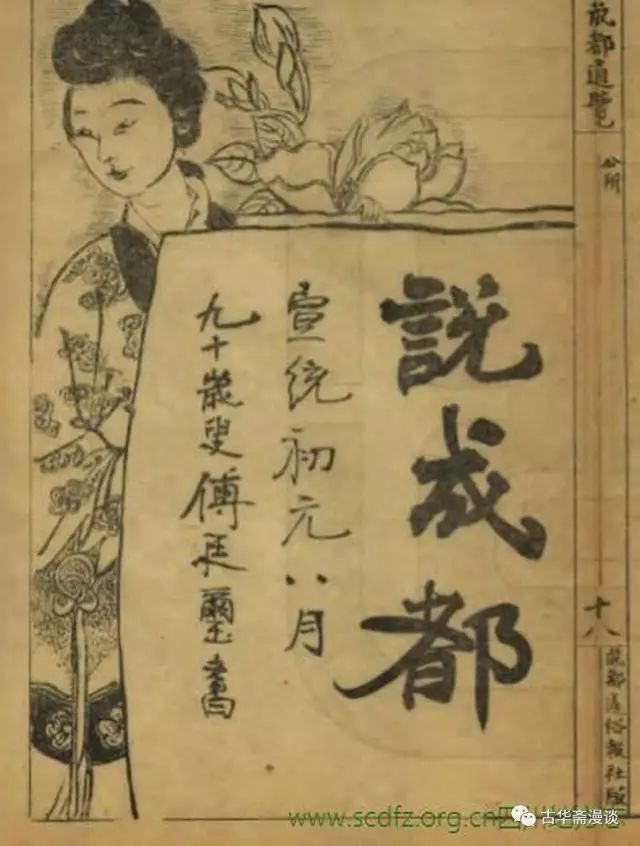 成都通覽
公所
十八
成都通俗報社版
説成都
宣統初元八月
九十歲叟傅廷璽書
www.scdfz.org.cn四川
古华斋漫谈